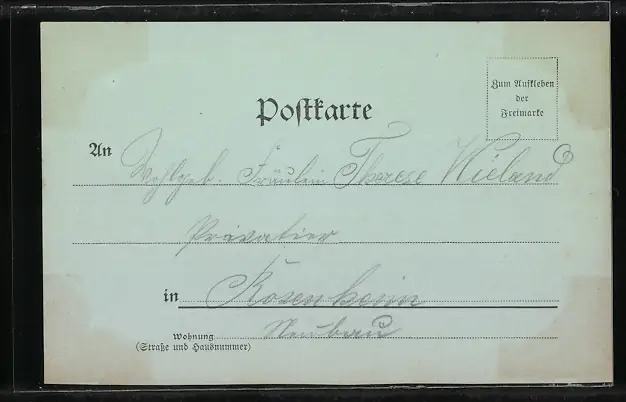 Zum Aufkleben
der
Freimarke
Postkarte
An Wohlgeb. Fräulein Therese Wieland
Privatier
in Rosenheim
Wohnung Neubau
(Straße und Hausnummer)